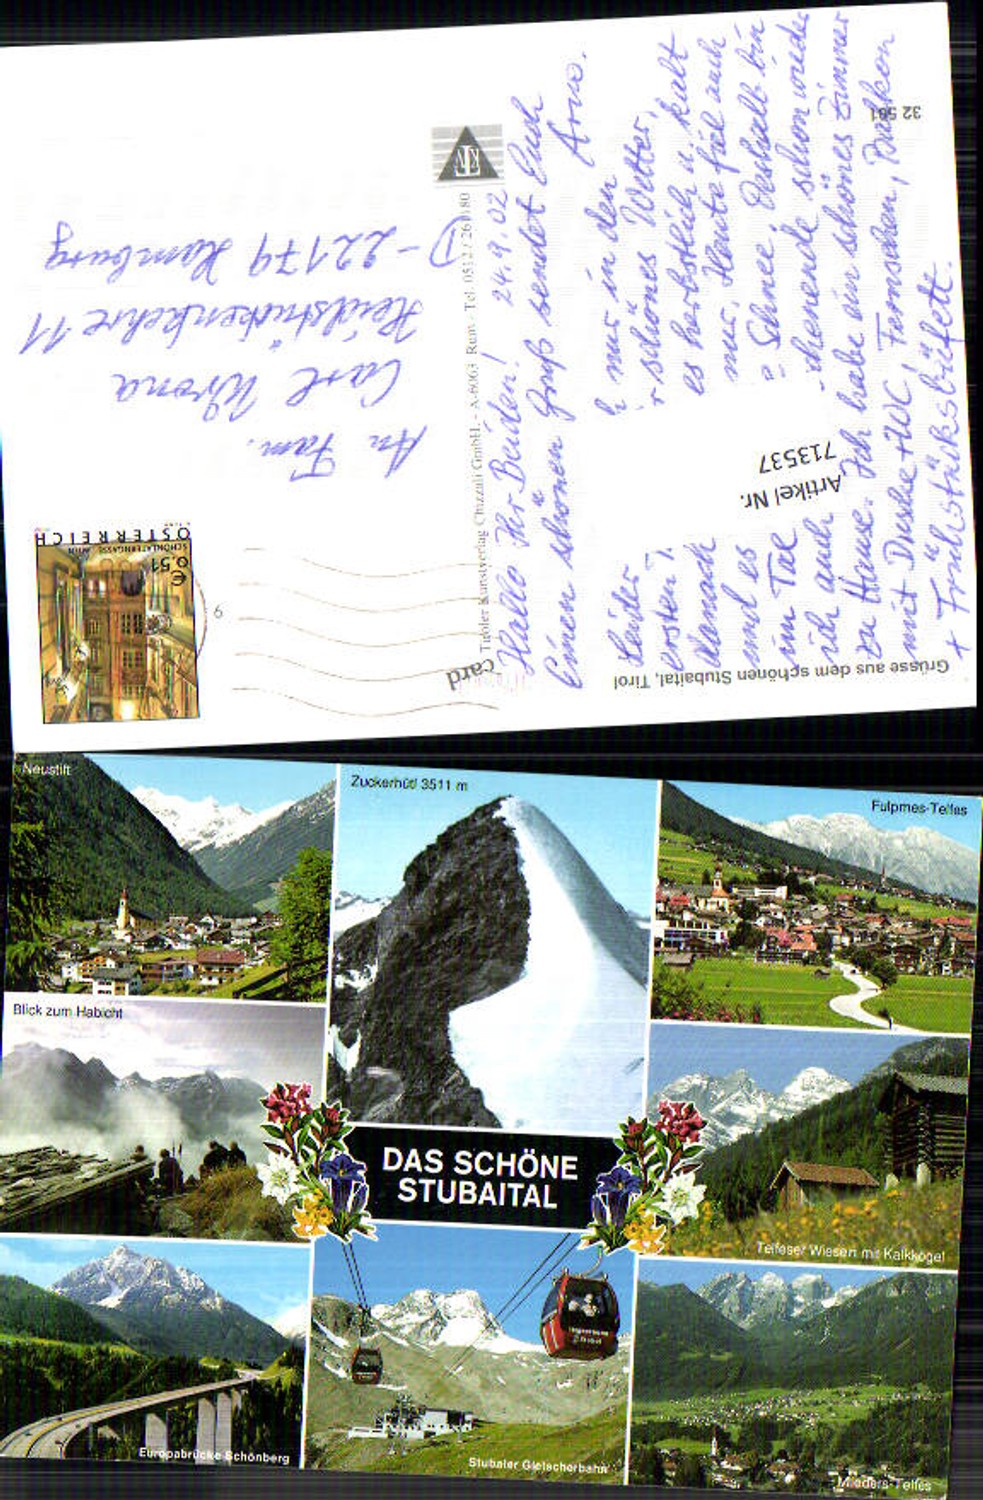 An Fam.
Carl Wrona
Heidstückenkehre 11
D-22179 Hamburg
ÖSTERREICH
SCHÖNLATERNGASSE WIEN
€ 0,51
6
card
Tiroler Kunstverlag Chizzali GmbH. - A-6063 Rum - Tel. 0512 / 261180
KTV
32 561
Grüsse aus dem schönen Stubaital, Tirol
Hallo Ihr Beiden! 24.9.02
Einen schönen Gruß sendet Euch
Arno.
Leider nur in den
ersten schönes Wetter,
danach es herbstlich u. kalt
und es nur. Heute fiel auch
im Tal Schnee. Deshalb bin
ich auch schon wieder
zu Hause. Ich habe ein schönes Zimmer
mit Dusche + WC, Fernsehen, Balkon
+ Frühstücksbüfett.
Artikel Nr.
713537
Neustift
Zuckerhütl 3511 m
Fulpmes-Telfes
Blick zum Habicht
DAS SCHÖNE
STUBAITAL
Telfeser Wiesen mit Kalkkögel
Europabrücke Schönberg
Stubaier Gletscherbahn
Mieders-Telfes